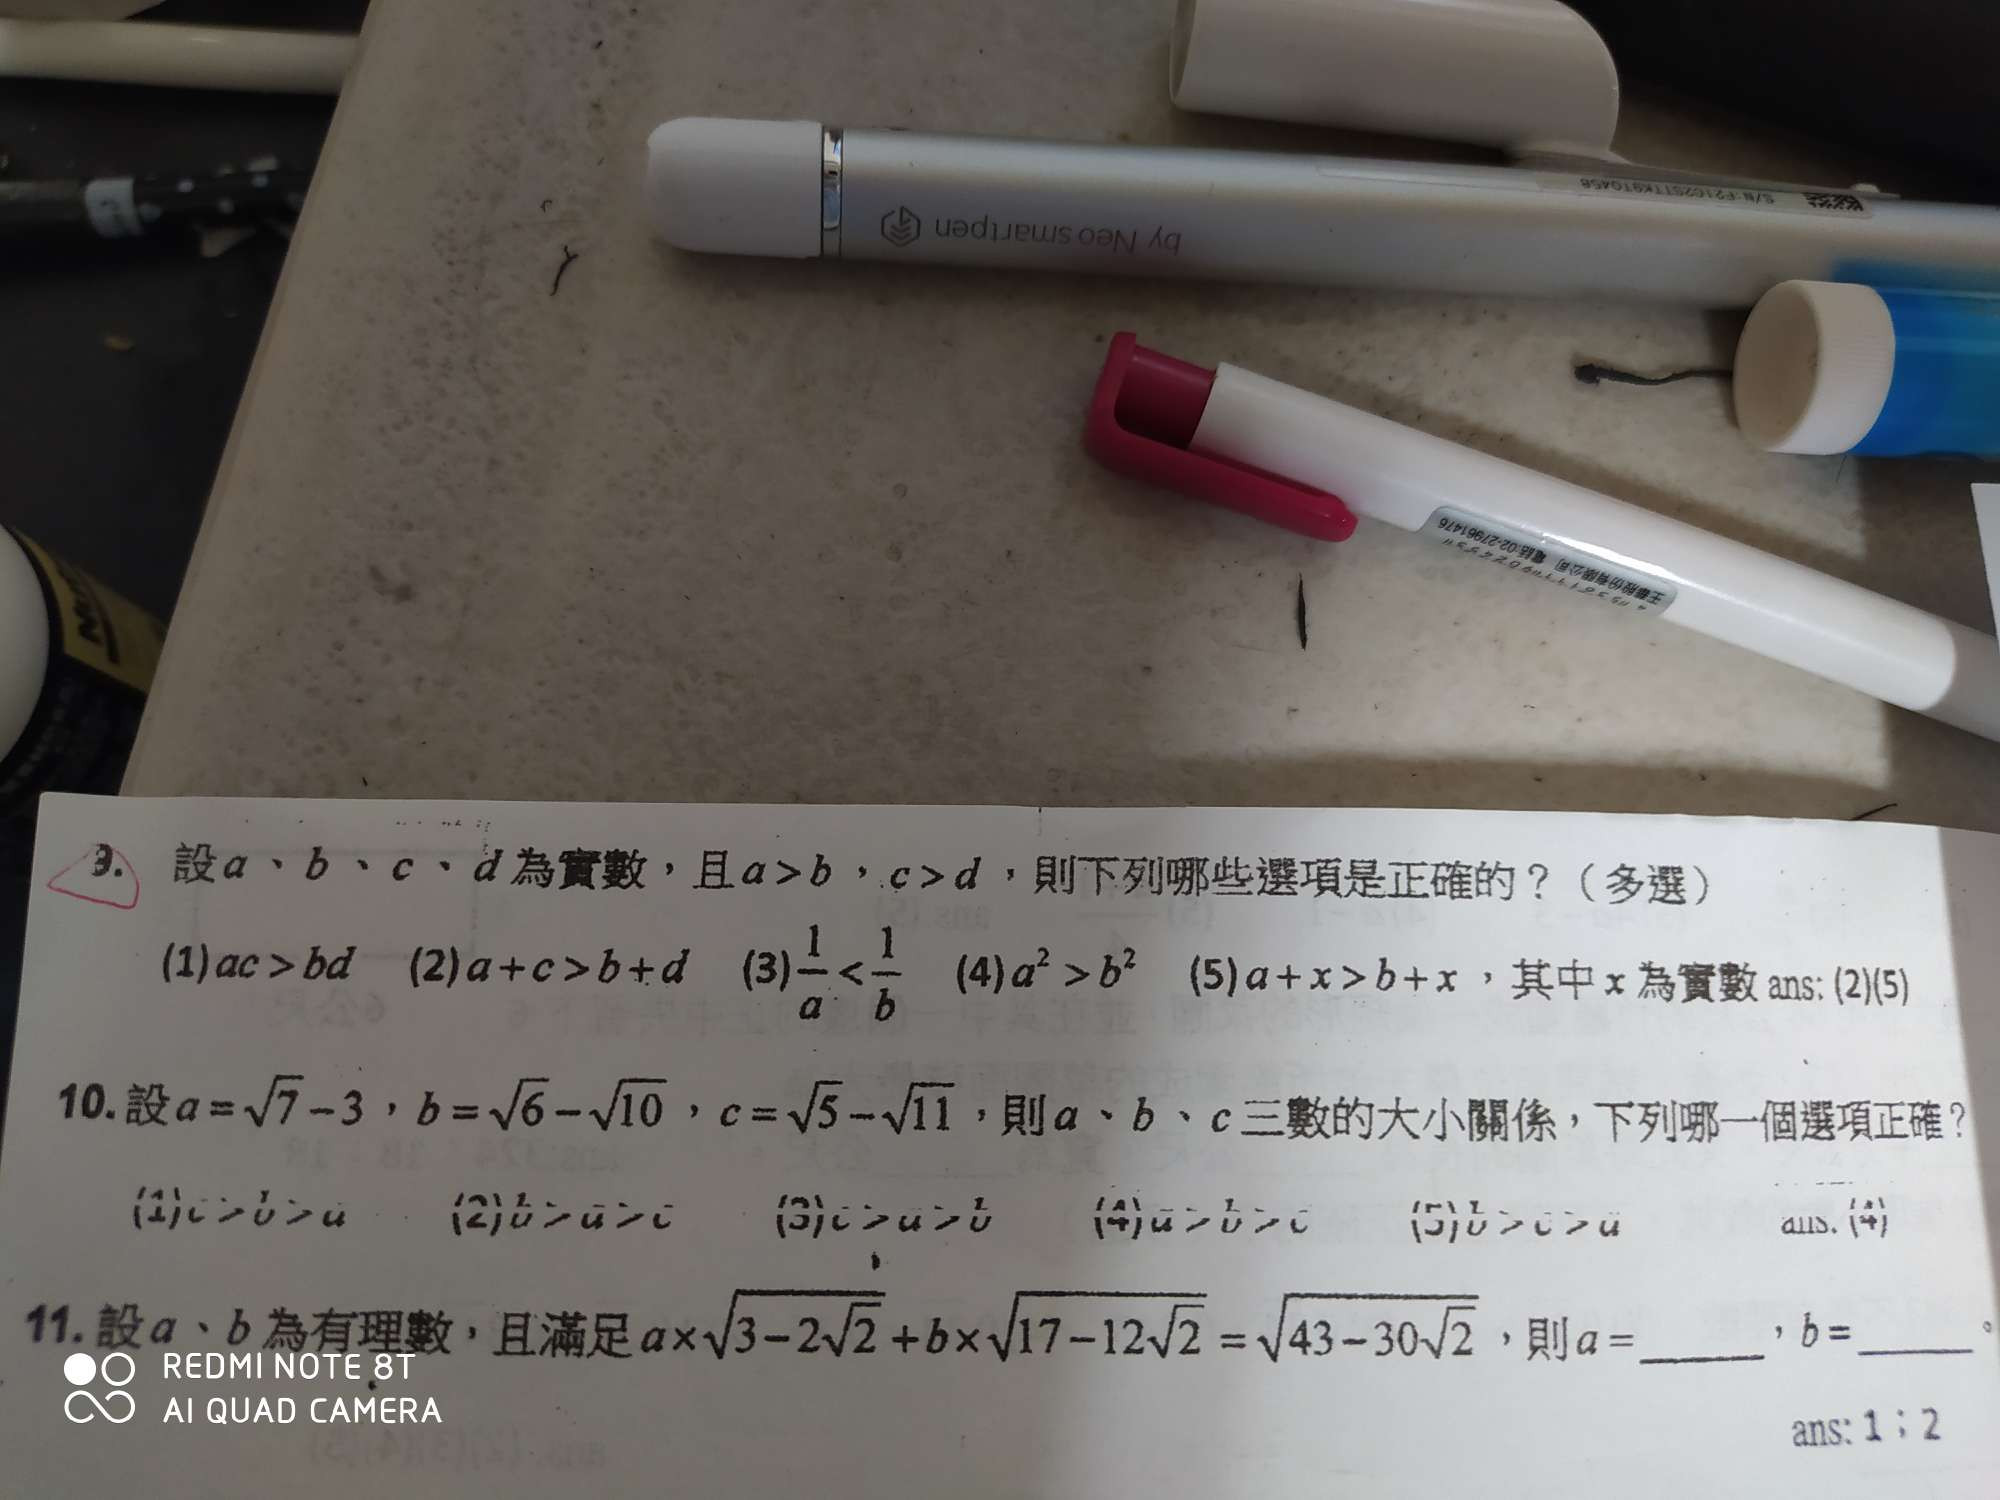 by Neo smartpen
S/N:F21C2STTK9T0458
王華股份有限公司 電話:02-27961476
9. 設a、b、c、d為實數，且a>b，c>d，則下列哪些選項是正確的？（多選）
(1)ac>bd (2)a+c>b+d (3)1/a<1/b (4)a²>b² (5)a+x>b+x，其中x為實數 ans: (2)(5)
10. 設a=√7−3，b=√6−√10，c=√5−√11，則a、b、c三數的大小關係，下列哪一個選項正確？
(1)c>b>a (2)b>a>c (3)c>a>b (4)a>b>c (5)b>c>a ans. (4)
11. 設a、b為有理數，且滿足a×√(3−2√2)+b×√(17−12√2)=√(43−30√2)，則a=______，b=______。
REDMI NOTE 8T
AI QUAD CAMERA
ans: 1；2